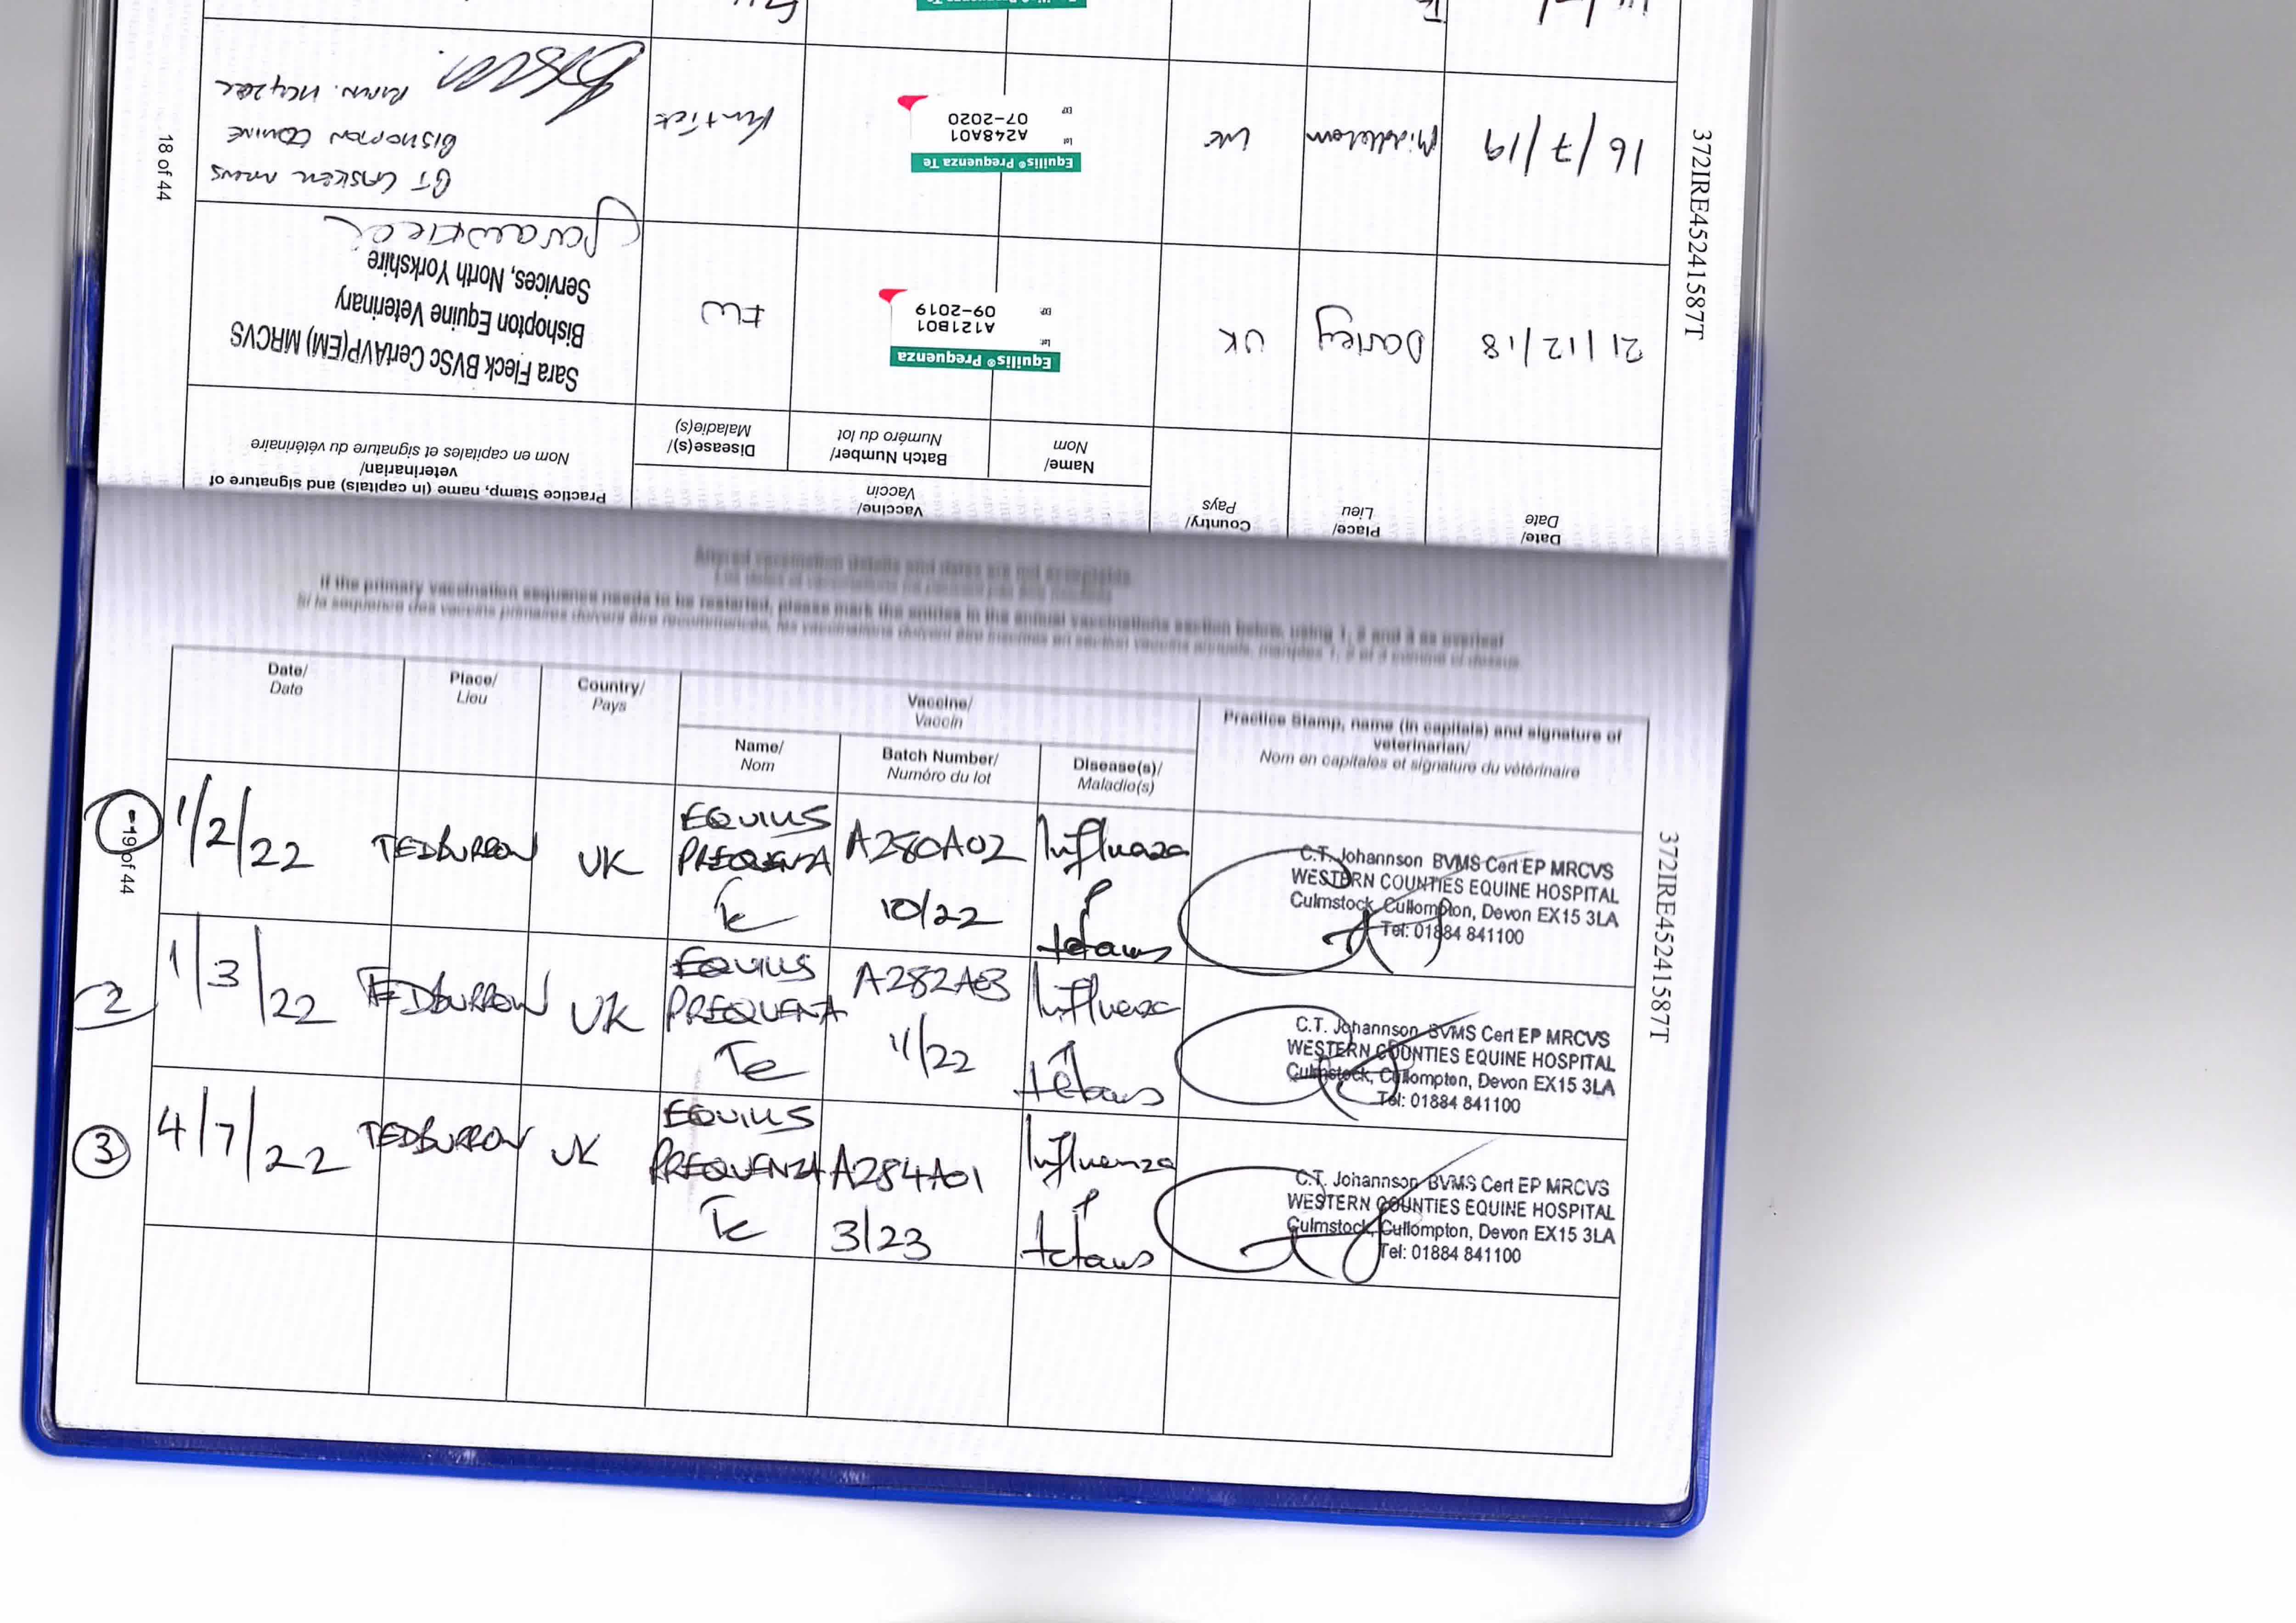 18 of 44
372IRE45241587T
Practice Stamp, name (in capitals) and signature of
veterinarian/
Nom en capitales et signature du vétérinaire
Date/
Date
Place/
Lieu
Country/
Pays
Vaccine/
Vaccin
Name/
Nom
Batch Number/
Numéro du lot
Disease(s)/
Maladie(s)
21/12/18
Darley
UK
Equilis® Prequenza
Lot: A121B01
EXP: 09-2019
EW
Sara Fleck BVSc CertAVP(EM) MRCVS
Bishopton Equine Veterinary
Services, North Yorkshire
16/7/19
Middleham
UK
Equilis® Prequenza Te
Lot A248A01
EXP 07-2020
BISHOPTON EQUINE
Altered vaccination details and dates are not acceptable
If the primary vaccination sequence needs to be restarted, please mark the entries in the annual vaccinations section below, using 1, 2 and 3 as overleaf
Date/
Date
Place/
Lieu
Country/
Pays
Vaccine/
Vaccin
Name/
Nom
Batch Number/
Numéro du lot
Disease(s)/
Maladie(s)
Practice Stamp, name (in capitals) and signature of
veterinarian/
Nom en capitales et signature du vétérinaire
19 of 44
372IRE45241587T
1
1/2/22
TEDBURROW
UK
EQUILIS
PREQUENZA
Te
A280A02
10/22
Influenza
&
tetanus
C.T. Johannson BVMS Cert EP MRCVS
WESTERN COUNTIES EQUINE HOSPITAL
Culmstock, Cullompton, Devon EX15 3LA
Tel: 01884 841100
2
1/3/22
TEDBURROW
UK
EQUILIS
PREQUENZA
Te
A282A03
11/22
Influenza
&
tetanus
C.T. Johannson BVMS Cert EP MRCVS
WESTERN COUNTIES EQUINE HOSPITAL
Culmstock, Cullompton, Devon EX15 3LA
Tel: 01884 841100
3
4/7/22
TEDBURROW
UK
EQUILIS
PREQUENZA
Te
A284A01
3/23
Influenza
&
tetanus
C.T. Johannson BVMS Cert EP MRCVS
WESTERN COUNTIES EQUINE HOSPITAL
Culmstock, Cullompton, Devon EX15 3LA
Tel: 01884 841100